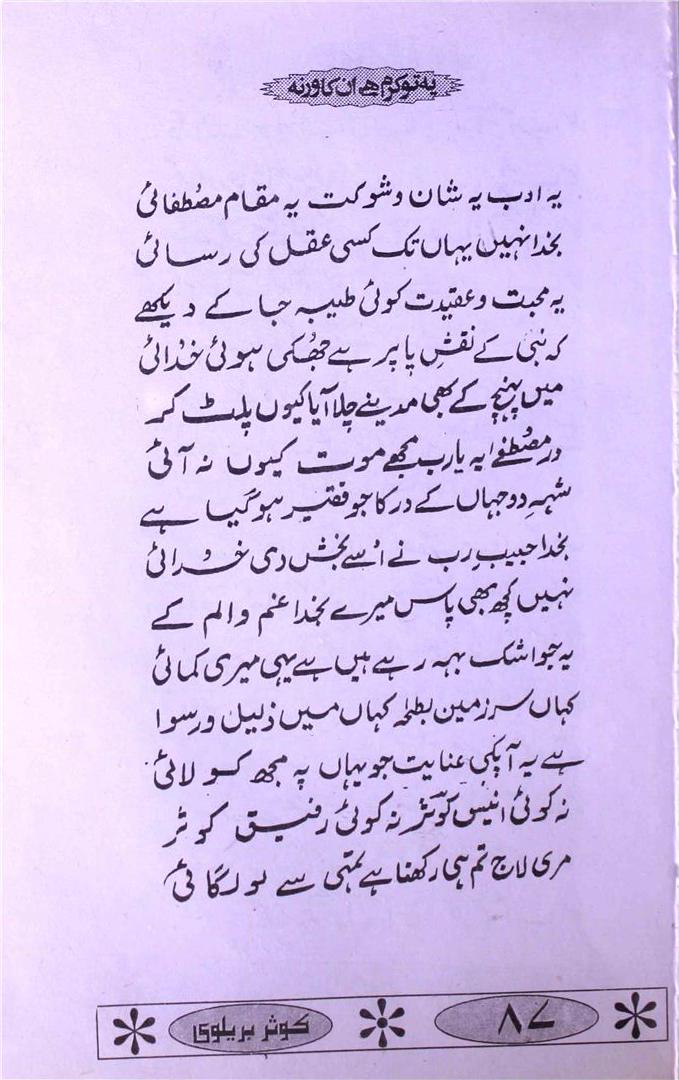 یہ تو کرم ہے ان کا ورنہ
یہ ادب یہ شان و شوکت یہ مقام مصطفائی
بخدا نہیں یہاں تک کسی عقل کی رسائی
یہ محبت و عقیدت کوئی طیبہ جا کے دیکھے
کہ نبی کے نقشِ پا پر ہے جھُکی ہوئی خُدائی
میں پہنچ کے بھی مدینے چلا آیا کیوں پلٹ کر
درِ مصُطفےٰ پہ یارب مجھے موت کیوں نہ آئی
شہہِ دوجہاں کے در کا جو فقیر ہو گیا ہے
بخدا حبیبِ رب نے اُسے بخش دی خُدائی
نہیں کچھ بھی پاس میرے بخدا غم و الم کے
یہ جو اشک بہہ رہے ہیں ہے یہی میری کمائی
کہاں سرزمین بطحہ کہاں میں ذلیل و رسوا
ہے یہ آپکی عنایت جو یہاں پہ مجھ کو لائی
نہ کوئی انیس کوثر نہ کوئی رفیق کوثر
مری لاج تم ہی رکھنا ہے تمہی سے لو لگائی
کوثر بریلوی
۸۷